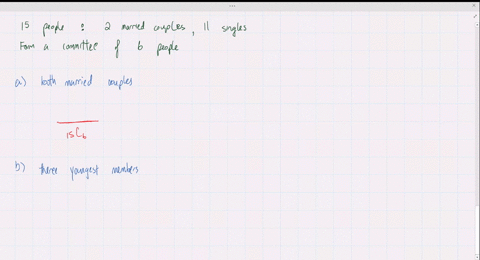 15 people : 2 married couples, 11 singles
Form a committee of 6 people
a) both married couples
15C6
b) three youngest members